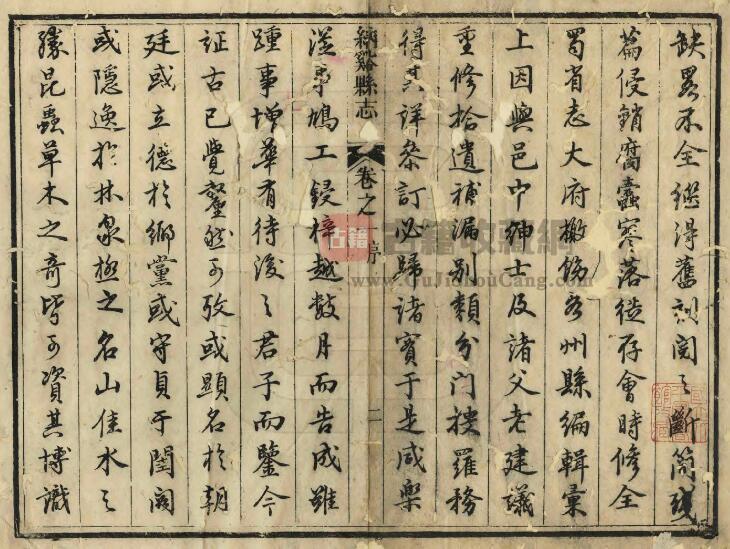 缺畧不全继得舊刻閱之斷簡残
篇侵銷腐蠹寥落徒存會時修全
蜀省志大府檄飭各州縣編輯彙
上因與邑中紳士及諸父老建議
重修拾遺補漏别類分門搜羅務
得其详参訂必歸諸實于是咸樂
納谿縣志 卷之 序 二
從事鳩工鋟梓越数月而告成雖
踵事增華有待後之君子而鑒今
証古已覺犂然可攷或顯名於朝
廷或立德於鄉黨或守貞于閨閫
或隐逸於林泉極之名山佳水之
緣昆蟲草木之奇皆可資其博識
古籍 古籍收藏網
www.GuJiShouCang.com